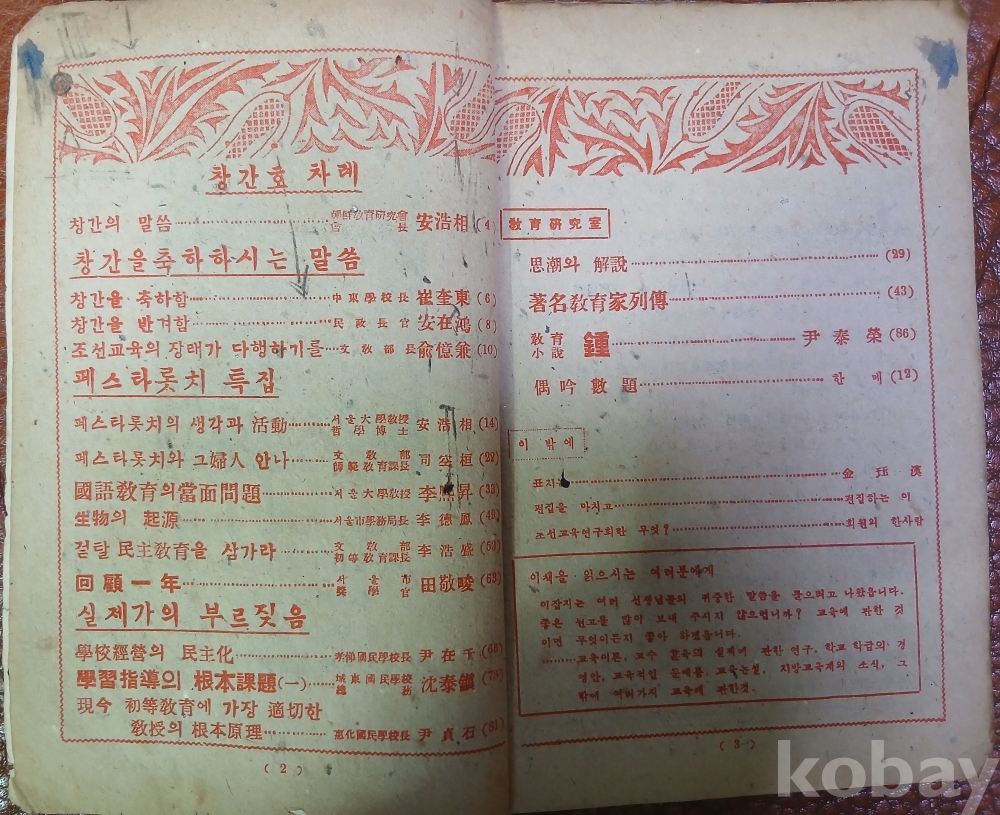 창간호 차례
창간의 말씀 朝鮮敎育硏究會 會長 安浩相 (4)
창간을축하하시는 말씀
창간을 축하함 中東學校長 崔奎東 (6)
창간을 반겨함 民政長官 安在鴻 (8)
조선교육의 장래가 다행하기를 文敎部長 兪億兼 (10)
페스타롯치 특집
페스타롯치의 생각과 活動 서울大學敎授 哲學博士 安浩相 (14)
페스타롯치와 그婦人 안나 文敎部 師範敎育課長 司空桓
國語敎育의當面問題 서울大學敎授 李熙昇
生物의 起源 서울市學務局長 李德鳳
걷탈 民主敎育을 삼가라 文敎部 初等敎育課長 李浩盛
回顧一年 서울市 奬學官 田敬畯 (63)
실제가의 부르짖음
學校經營의 民主化 孝悌國民學校長 尹在千 (66)
學習指導의 根本課題(一) 城東國民學校 沈泰鎭
現今 初等敎育에 가장 適切한
敎授의 根本原理 惠化國民學校長 尹貞石 (81)
( 2 )
敎育硏究室
思潮와 解說 (29)
著名敎育家列傳 (43)
敎育小說 鍾 尹泰榮 (86)
偶吟數題 한메 (12)
이 밖에
표지 金珏漢
편집을 마치고 편집하는 이
조선교육연구회란 무엇? 회원의 한사람
이책을 읽으시는 여러분에게
이잡지는 여러 선생님들의 귀중한 말씀을 들으려고 나왔읍니다.
좋은 원고를 많이 보내 주시지 않으렵니까? 교육에 관한 것
이면 무엇이든지 좋아 하겠읍니다.
교육이론, 교수 훈육의 실제에 관한 연구, 학교 학급의 경
영안, 교육적인 문예품, 교육논설, 지방교육계의 소식, 그
밖에 여러가지 교육에 관한것.
( 3 )
kobay